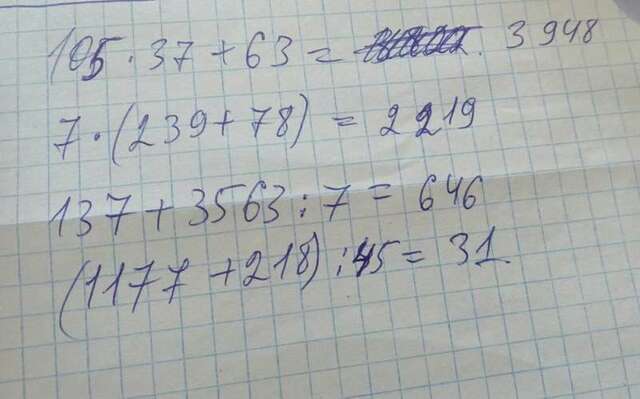 105 · 37 + 63 = 3 948
7 · (239 + 78) = 2219
137 + 3563 : 7 = 646
(1177 + 218) : 45 = 31